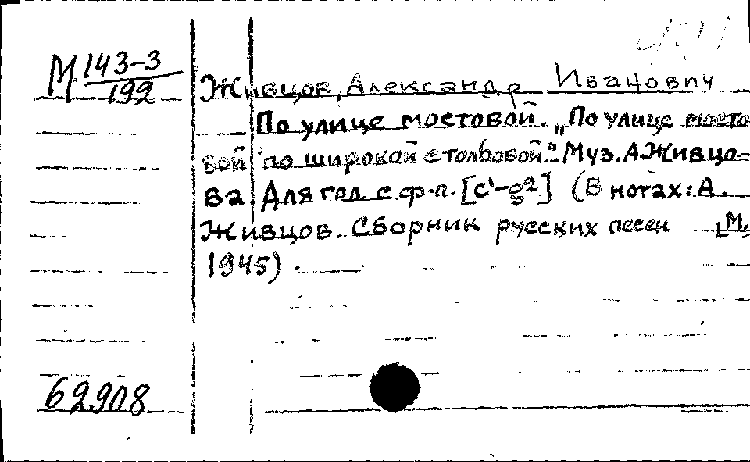 М 143-3
192
Живцов, Александр Иванович
По улице мостовой. „По улице мосто
вой по широкой столбовой". Муз. А. Живцо-
ва Для гол с ф-п. [c¹-g²] (В нотах: А.
Живцов. Сборник русских песен [М.
1945).
62908